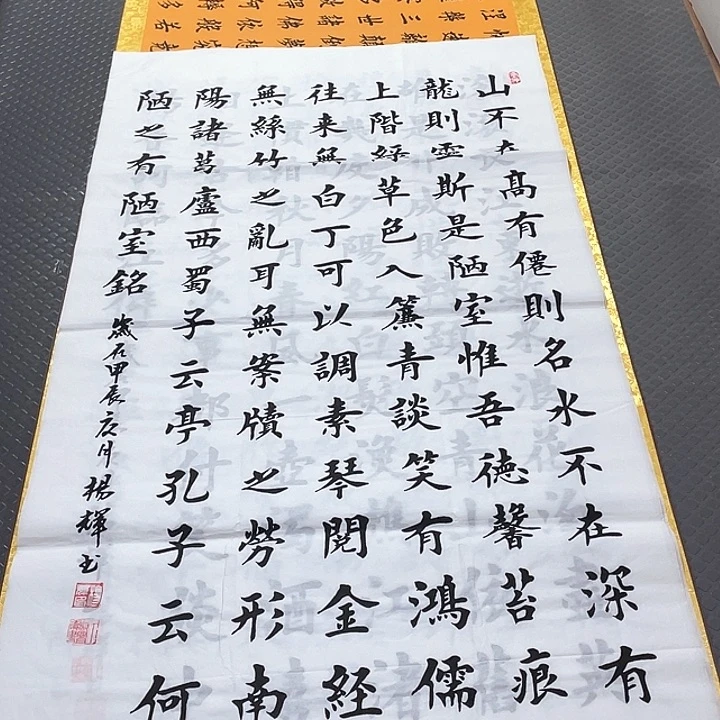 山不在高有僊則名水不在深有
龍則霊斯是陋室惟吾德馨苔痕
上階綠草色入簾青談笑有鴻儒
往来無白丁可以調素琴閱金経
無絲竹之亂耳無案牘之勞形南
陽諸葛廬西蜀子云亭孔子云何
陋之有陋室銘
歲在甲辰月楊輝书